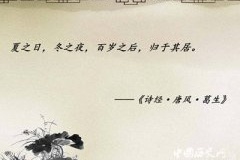 夏之日，冬之夜，百岁之后，归于其居。
——《诗经·唐风·葛生》